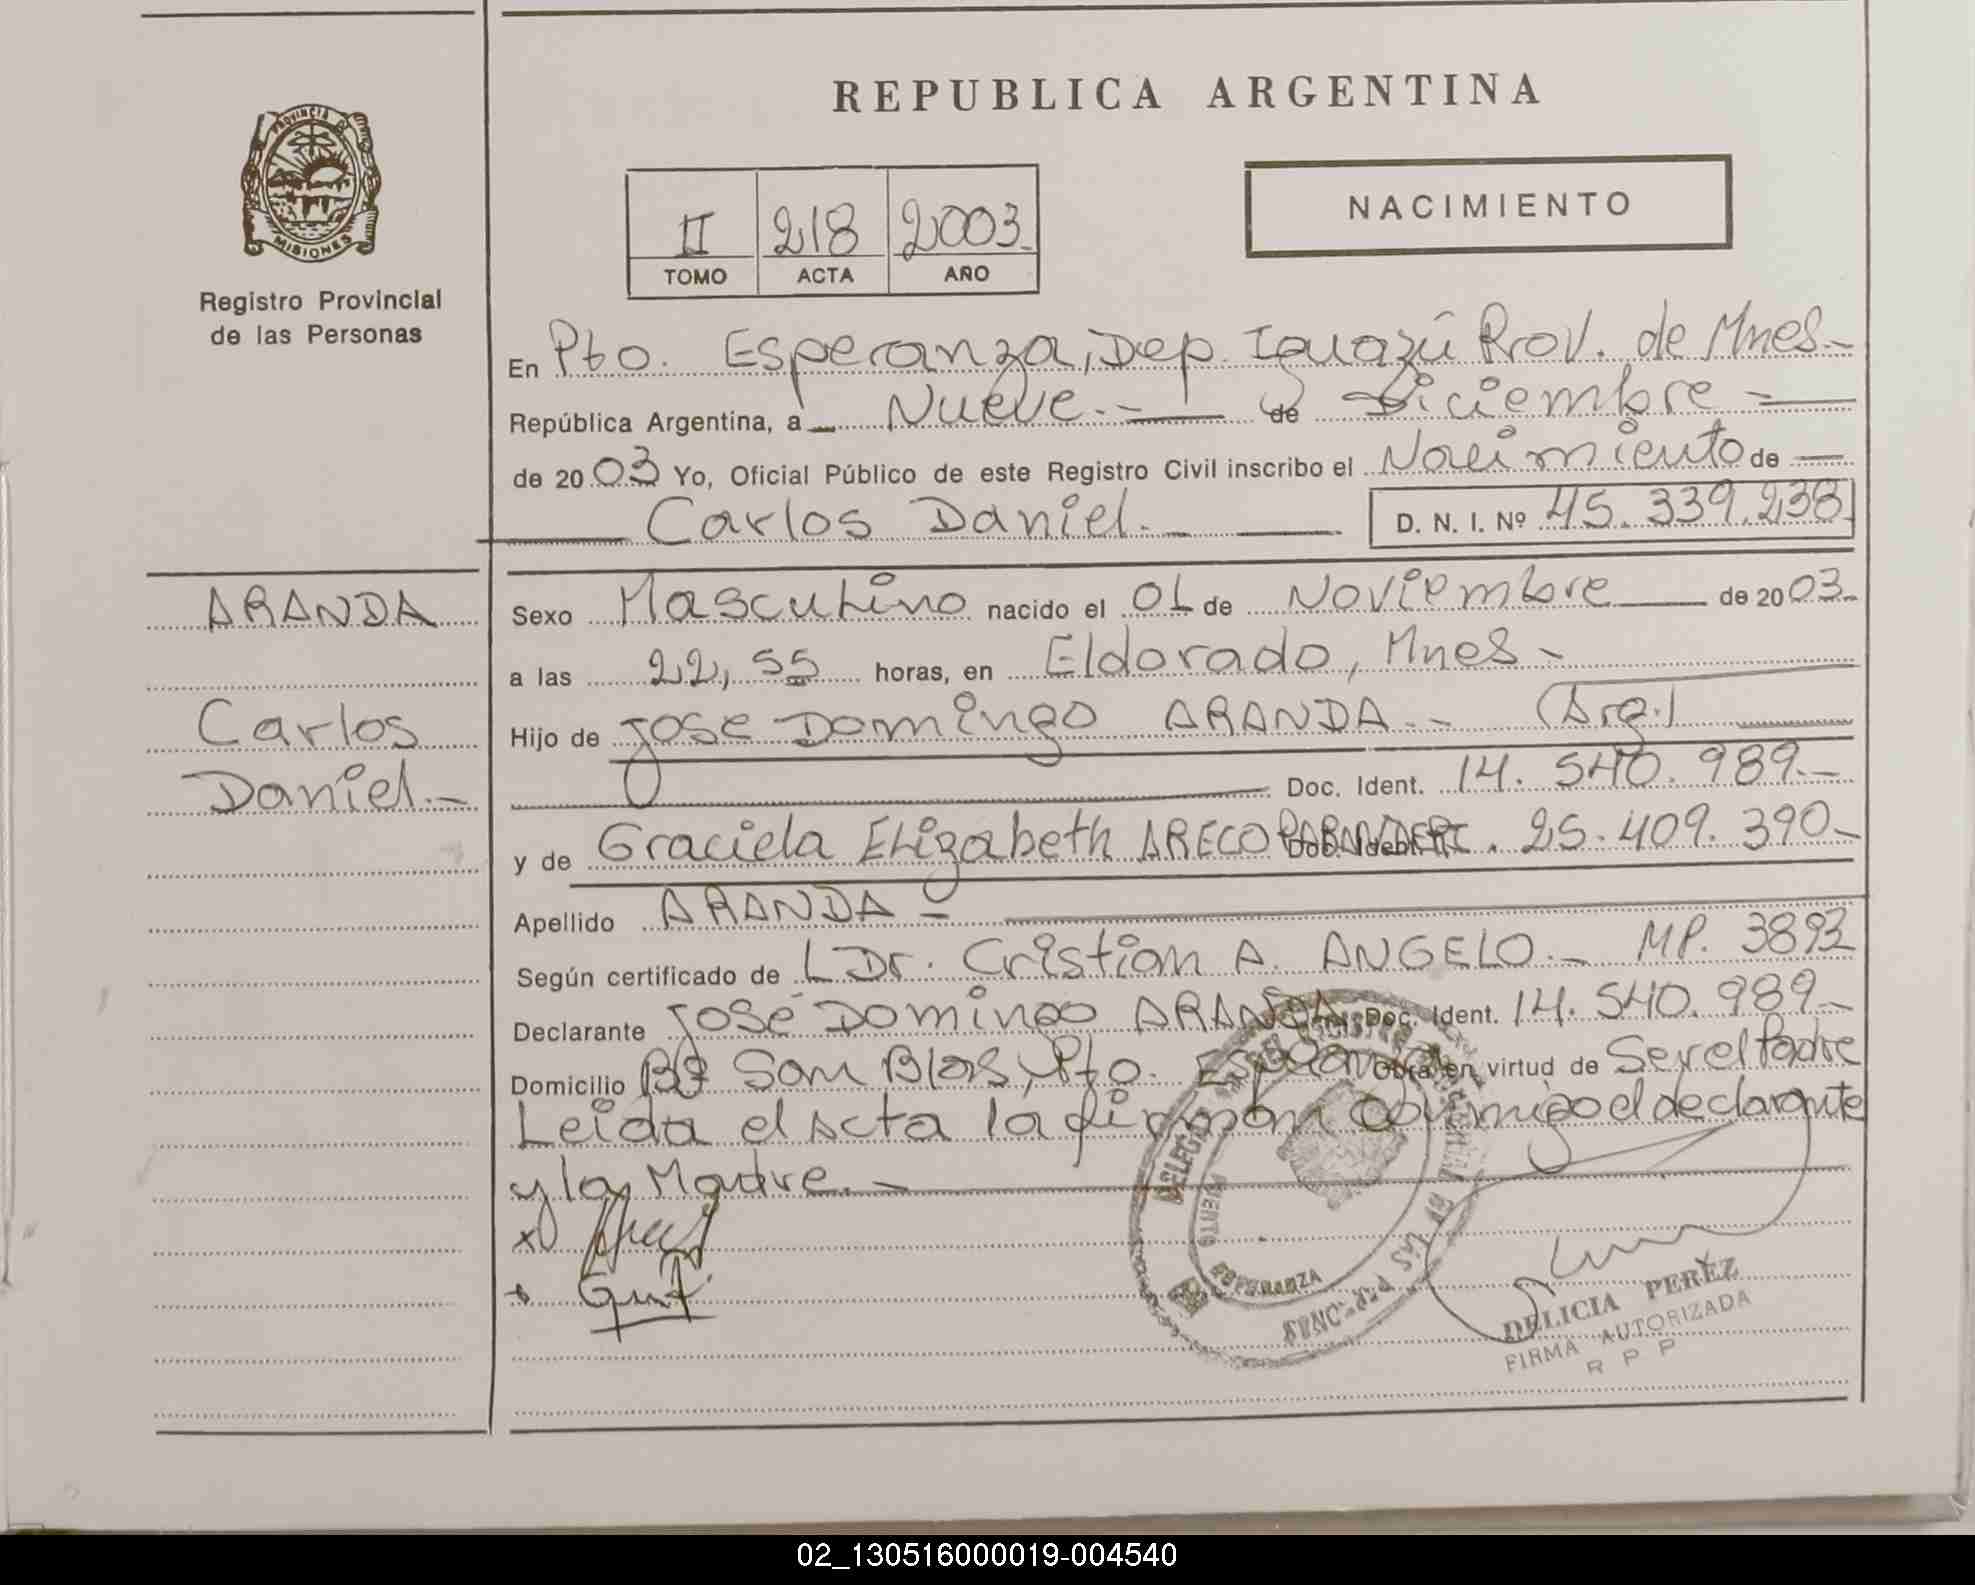 REPUBLICA ARGENTINA
PROVINCIA DE
MISIONES
Registro Provincial
de las Personas
II 218 2003
TOMO ACTA AÑO
NACIMIENTO
En Pto. Esperanza, Dep. Iguazú Prov. de Mnes-
República Argentina, a Nueve.- de Diciembre
de 20 03 Yo, Oficial Público de este Registro Civil inscribo el Nacimiento de
Carlos Daniel.- D. N. I. Nº 45.339.238
ARANDA
Carlos
Daniel.-
Sexo Masculino nacido el 01 de Noviembre de 20 03-
a las 22,55 horas, en Eldorado, Mnes-
Hijo de Jose Domingo ARANDA.- (Arg.)
Doc. Ident. 14.540.989.-
y de Graciela Elizabeth ARECO Doc. Ident. 25.409.390-
Apellido ARANDA-
Según certificado de L Dr. Cristian A. ANGELO.- MP. 3893
Declarante José Domingo ARANDA Doc. Ident. 14.540.989.-
Domicilio Bº San Blas, Pto. Esperanza Obra en virtud de Ser el Padre
Leida el Acta la firman conmigo el declarante
y la Madre.-
DELICIA PEREZ
FIRMA AUTORIZADA
R P P
ESPERANZA
02_130516000019-004540